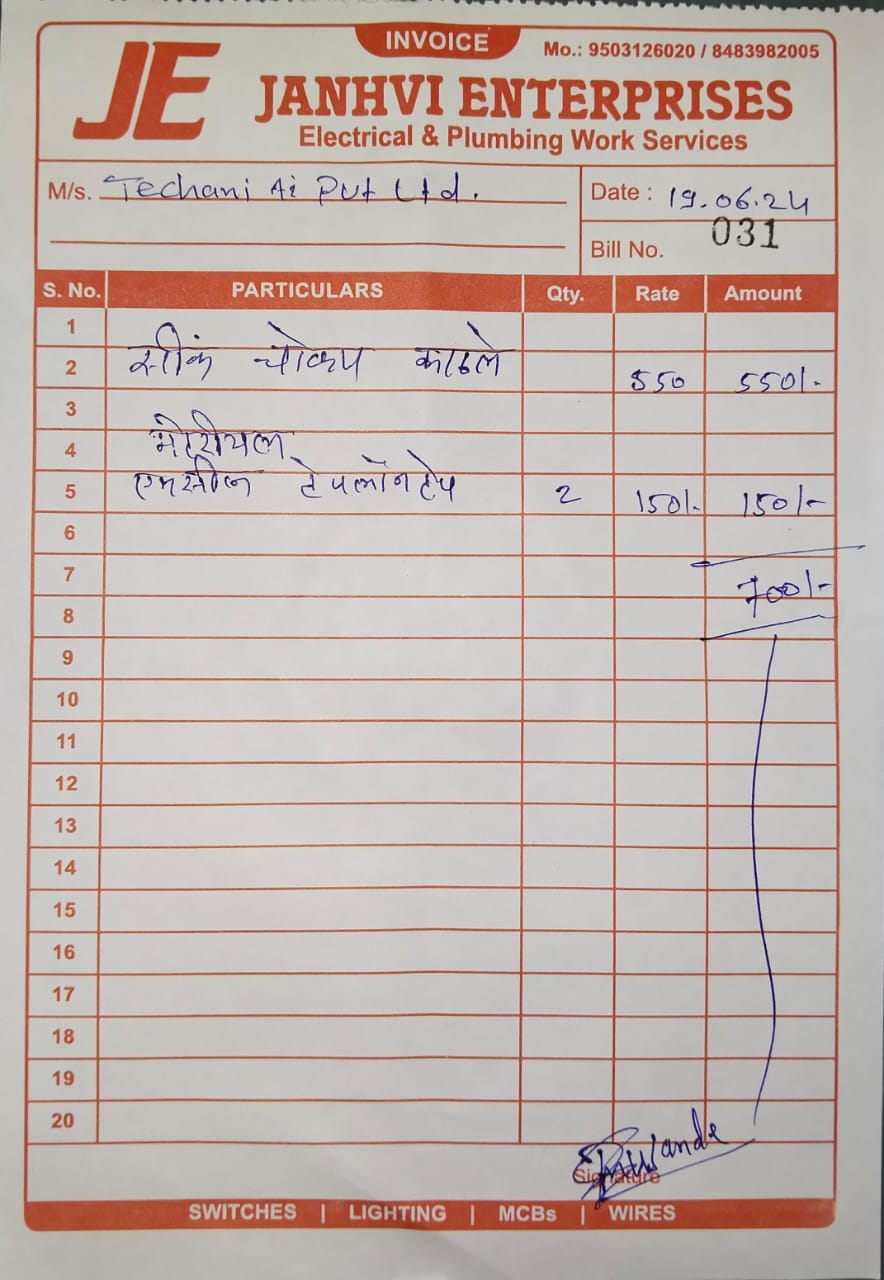 INVOICE
Mo.: 9503126020 / 8483982005
JE
JANHVI ENTERPRISES
Electrical & Plumbing Work Services
M/s. Techani Ai Pvt Ltd.
Date : 19.06.24
Bill No. 031
S. No. PARTICULARS Qty. Rate Amount
1
2 सींक चोकप काढले 550 550/-
3
4 मटेरीयल
5 एमसील टेपलॉन टेप 2 150/- 150/-
6
7 700/-
8
9
10
11
12
13
14
15
16
17
18
19
20
Signature
SWITCHES | LIGHTING | MCBs | WIRES